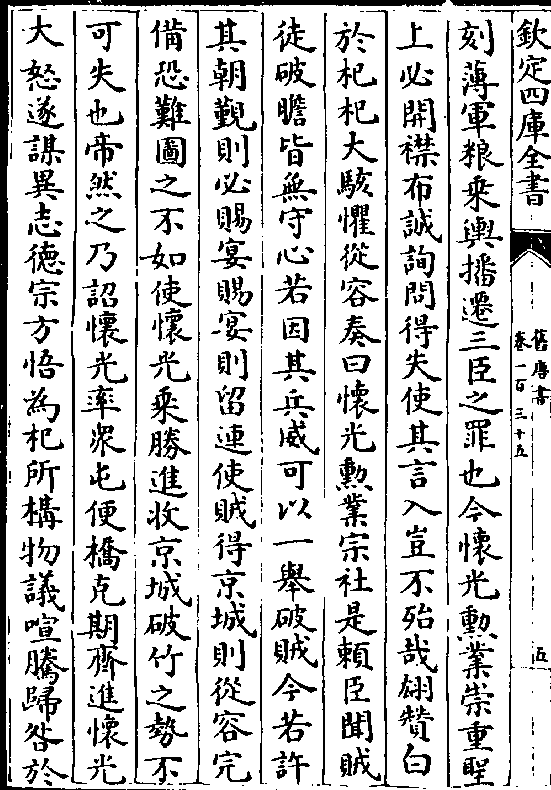 欽定四庫全書
舊唐書
卷一百三十五
五
刻薄軍粮乘輿播遷三臣之罪也今懷光勲業崇重聖
上必開襟布誠詢問得失使其言入豈不殆哉翃贊白
於杞杞大駭懼從容奏曰懷光勲業宗社是頼臣聞賊
徒破膽皆無守心若因其兵威可以一舉破賊今若許
其朝覲則必賜宴賜宴則留連使賊得京城則從容完
備恐難圖之不如使懷光乘勝進收京城破竹之勢不
可失也帝然之乃詔懷光率衆屯便橋克期齊進懷光
大怒遂謀異志德宗方悟為杞所構物議喧騰歸咎於